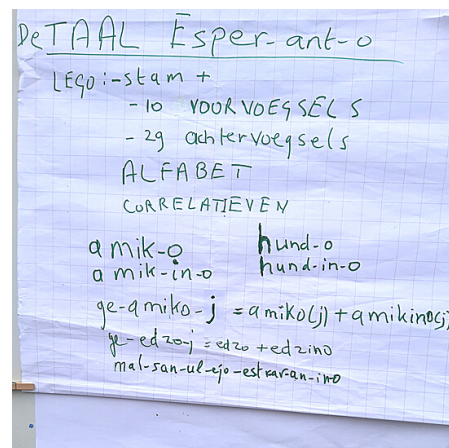 DeTAAL Esper-ant-o
LEGO:-stam +
- 10 VOORVOEGSELS
- 29 achtervoegsels
ALFABET
CORRELATIEVEN
amik-o hund-o
amik-in-o hund-in-o
ge-amiko-j = amiko(j) + amikino(j)
ge-edzo-j = edzo + edzino
mal-san-ul-ejo-estrar-an-ino